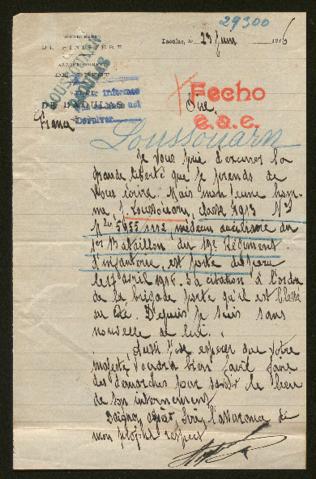 29300
DU FINISTÈRE
DE BREST
DE DAOULAS
Irvillac, le 23 Juin 1916
Fecho
e.a.e.
Sire,
France
Loussouarn
Je vous prie d'excuser la
grande liberté que je prends de
vous écrire. Mais mon jeune hom-
me L. Loussouarn, classe 1913
5655 médecin auxiliaire du
1er Bataillon du 19e Régiment
d'infanterie, est porté disparu
le avril 1916. Sa citation à l'ordre
de la brigade porte qu'il est blessé
au Depuis je suis sans
nouvelle de lui.
Aussi espérer que votre
majesté voudra bien faire
des démarches pour savoir le lieu
de son internement.
Daignez agréer Sire, l'assurance de
mon profond respect